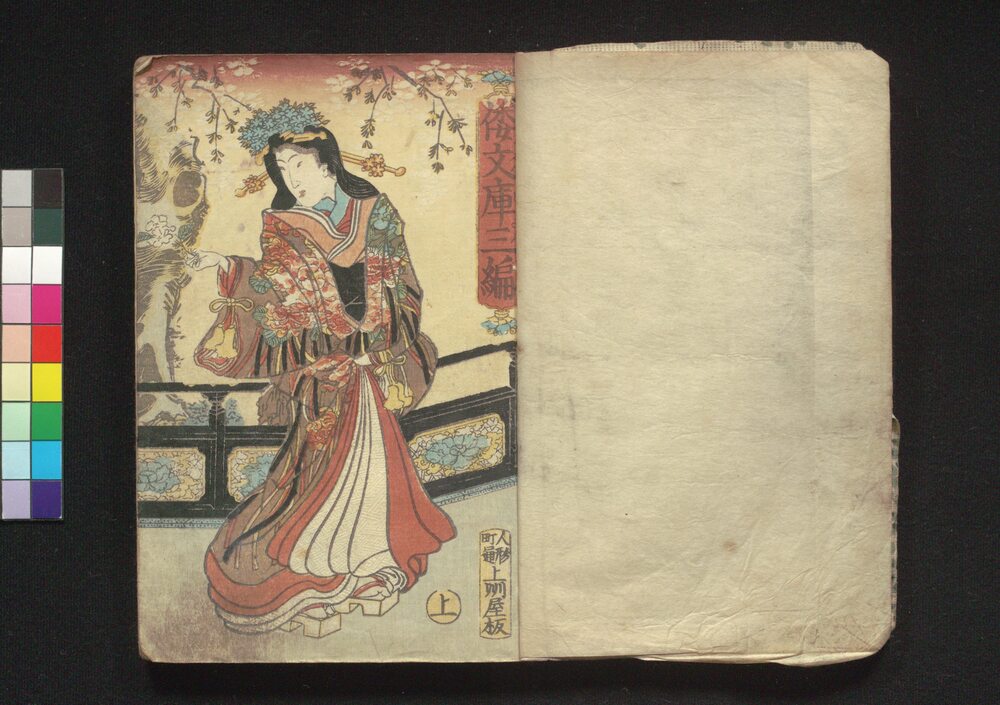 倭文庫三編
人形
町通
上州屋板
上